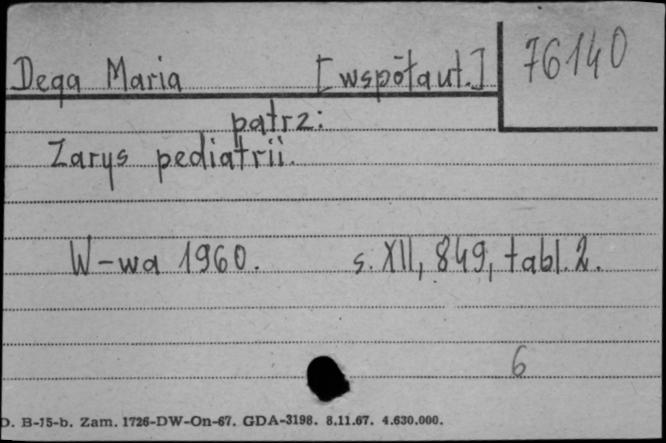 Dega Maria [współaut.] 76140
patrz:
Zarys pediatrii.
W-wa 1960. s. XII, 849, tabl. 2.
6
D. B-15-b. Zam. 1726-DW-On-67. GDA-3198. 8.11.67. 4.630.000.